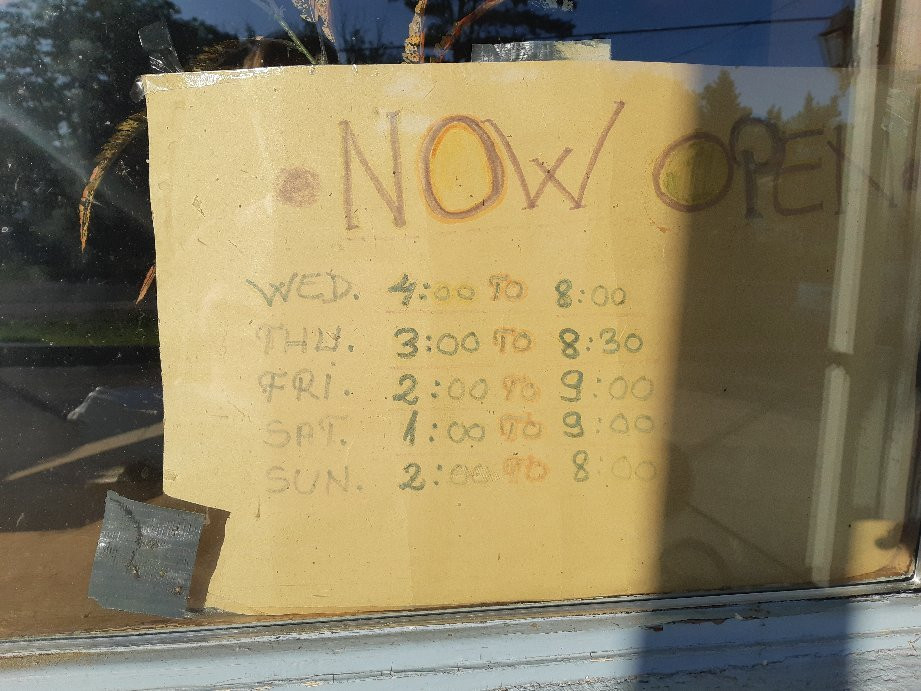 • NOW OPEN •
WED. 4:00 TO 8:00
THU. 3:00 TO 8:30
FRI. 2:00 TO 9:00
SAT. 1:00 TO 9:00
SUN. 2:00 TO 8:00